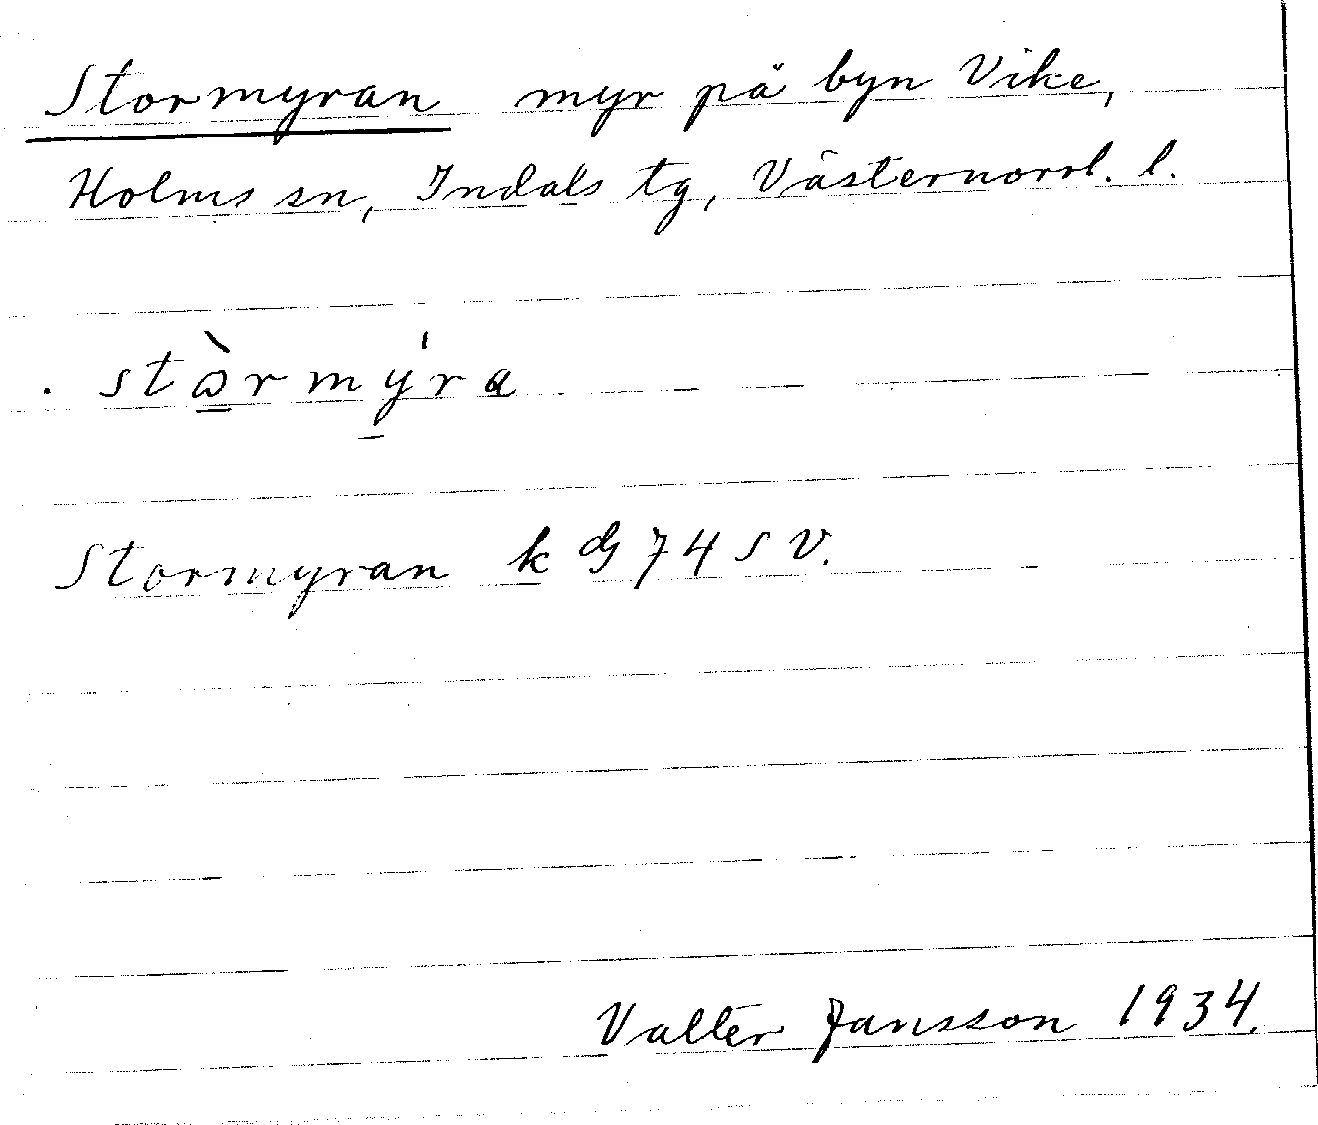 Stormyran myr på byn Vike,
Holms sn, Indals tg, Västernorrl. l.
stòrmýra
Stormyran k dg 74 SV.
Valter Jansson 1934.